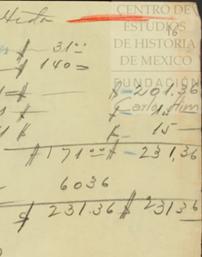 CENTRO DE
ESTUDIOS
DE HISTORIA
DE MEXICO
FUNDACIÓN
$ 31 00
$ 140 =
$ - 201.36
Carlos Slim
$ 15
$ - 15 -
$ 171 00 $ - 231.36
6036
$ 231.36 $ 231.36